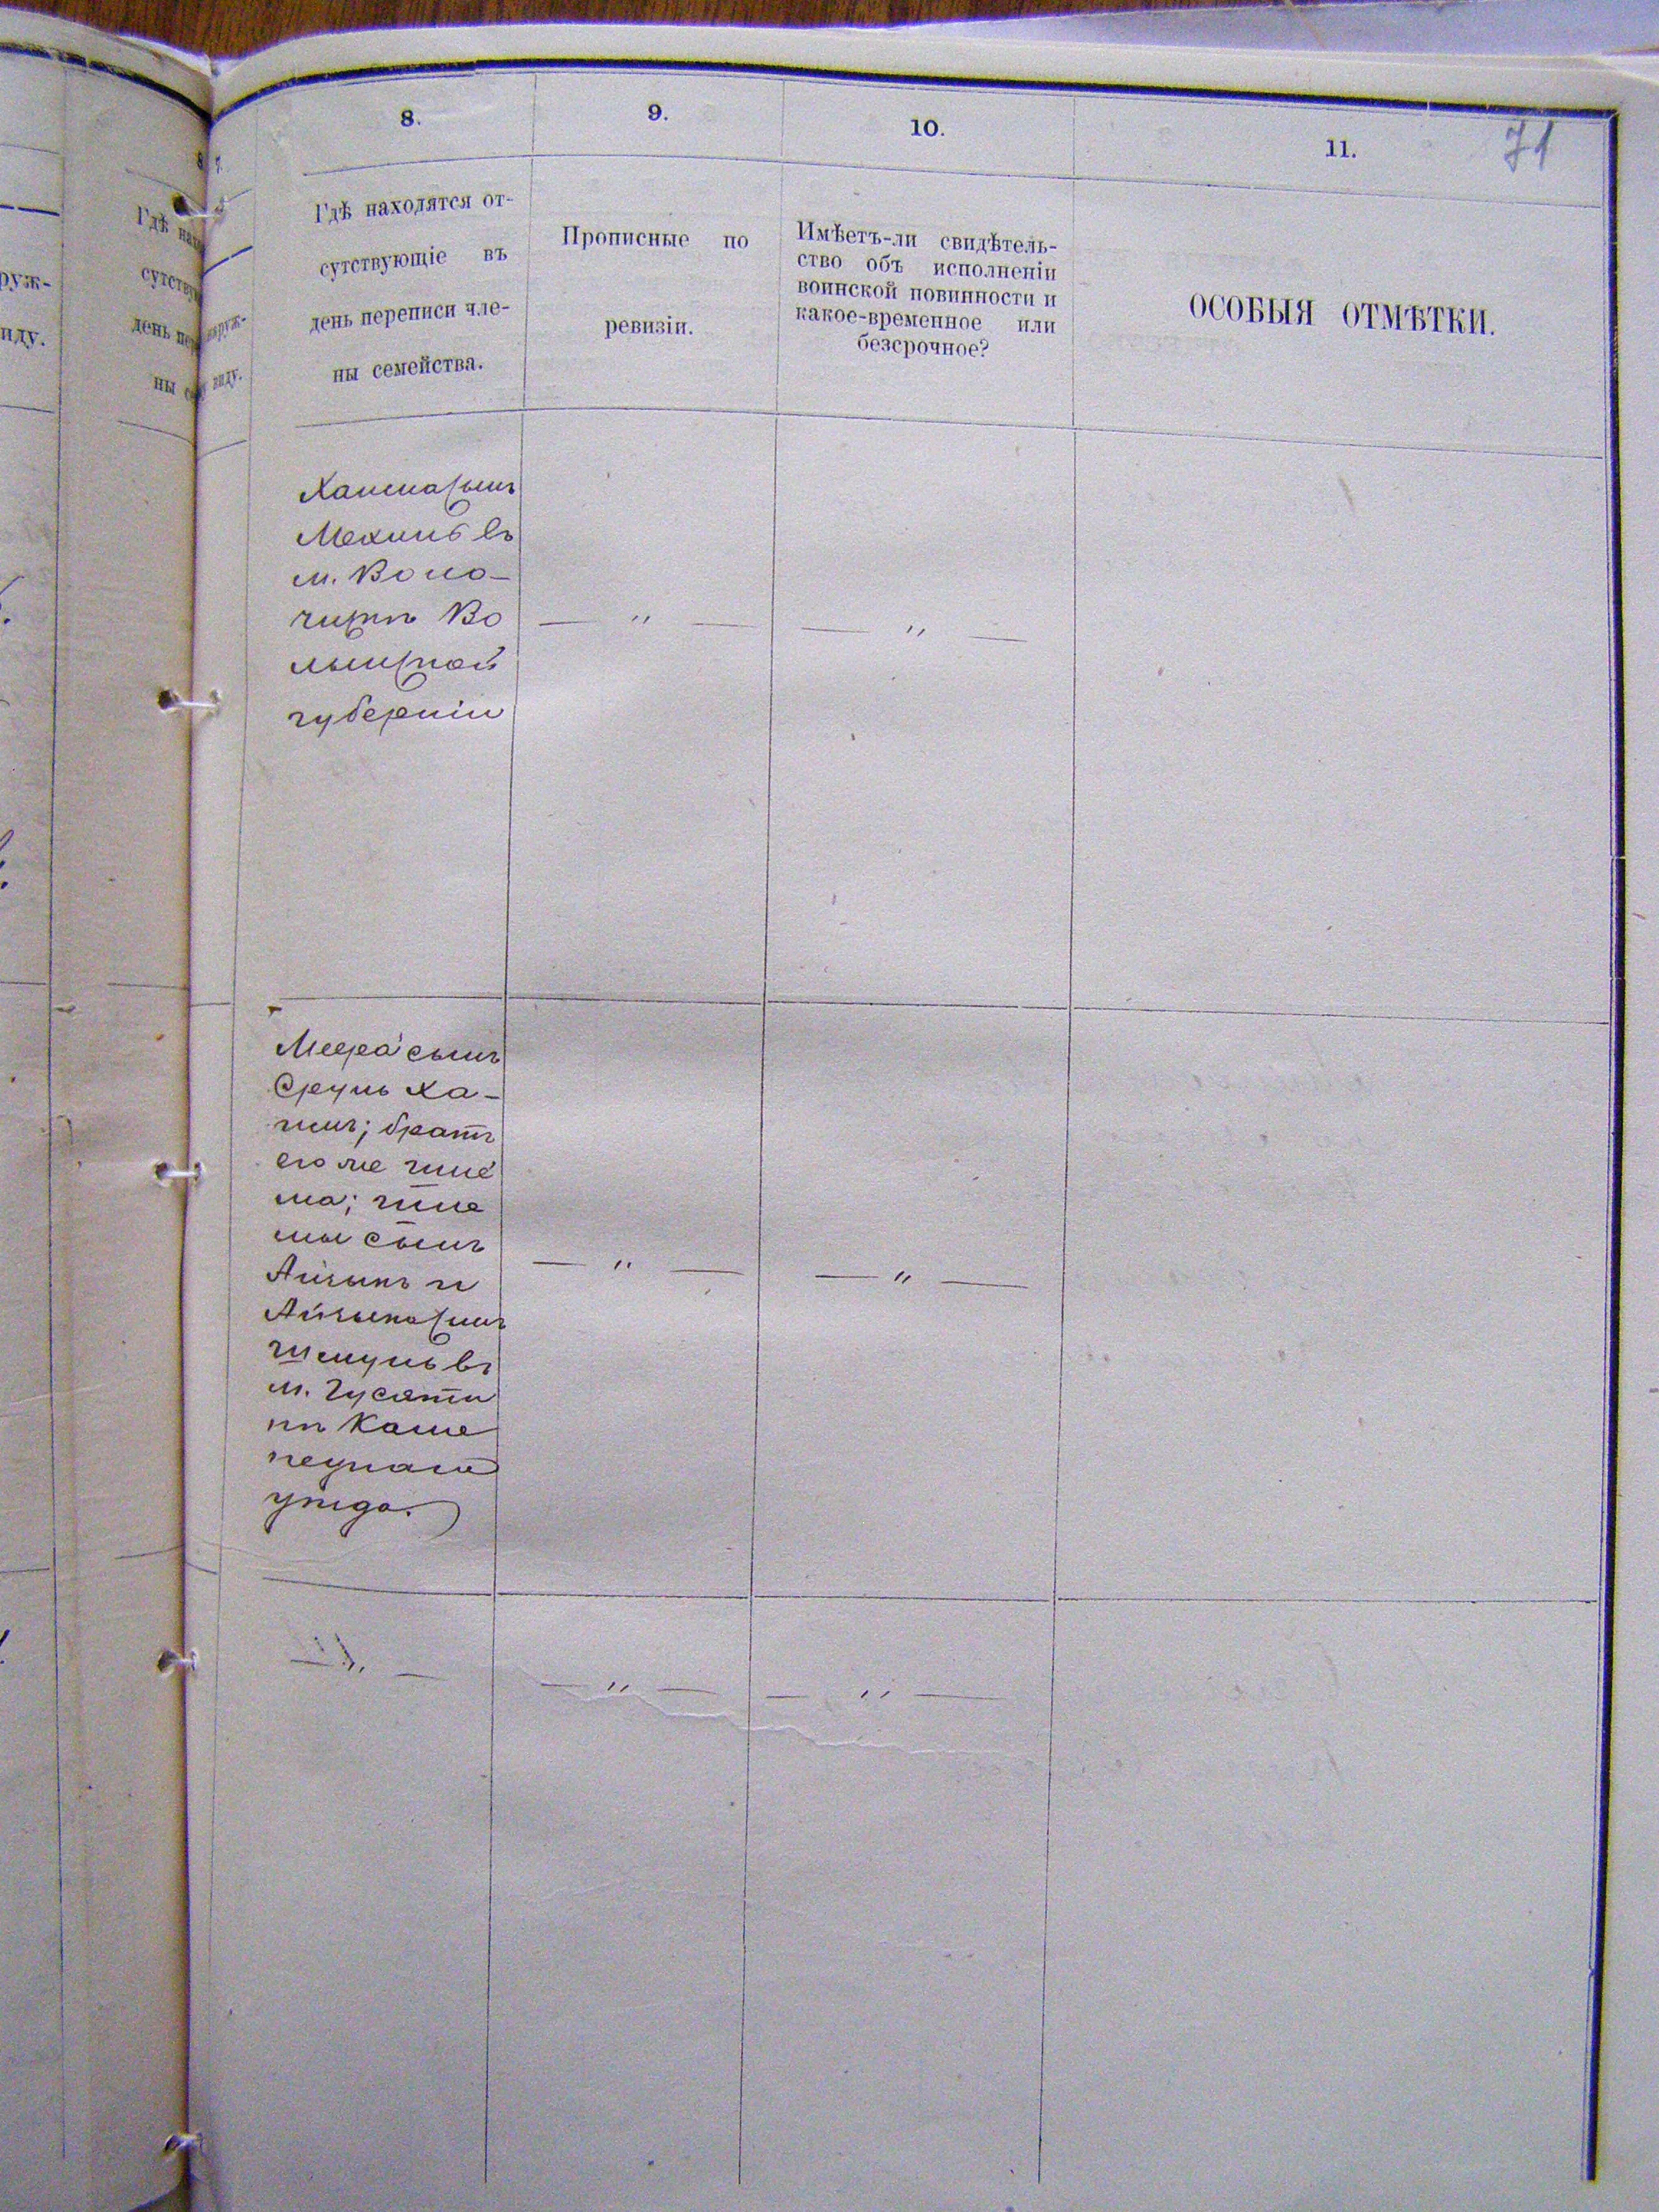 8.
9.
10.
11.
71
Гдѣ находятся от-
сутствующіе въ
день переписи чле-
ны семейства.
Прописные по
ревизіи.
Имѣетъ-ли свидѣтель-
ство объ исполненіи
воинской повинности и
какое-временное или
безсрочное?
ОСОБЫЯ ОТМѢТКИ.
сынъ
Мехель въ
м. Воло-
чискѣ Во
лынской
губерніи
— " —
— " —
Меера сынъ
Сруль Ха-
имъ; братъ
его же
сынъ
Айзыкъ и
Айзыка сынъ
въ
м. Гусяти
нѣ Каме
нецкаго
уѣзда.
— " —
— " —
— " —
— " —
— " —
руж-
иду.
наруж-
виду.
7.
Гдѣ
день
ны